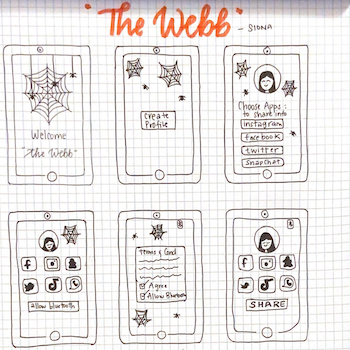 "The Webb"
- SIONA
Welcome
"The Webb"
Create
Profile
Choose Apps:
to share info
instagram
facebook
twitter
snapchat
allow bluetooth
Agree
Allow Bluetooth
SHARE